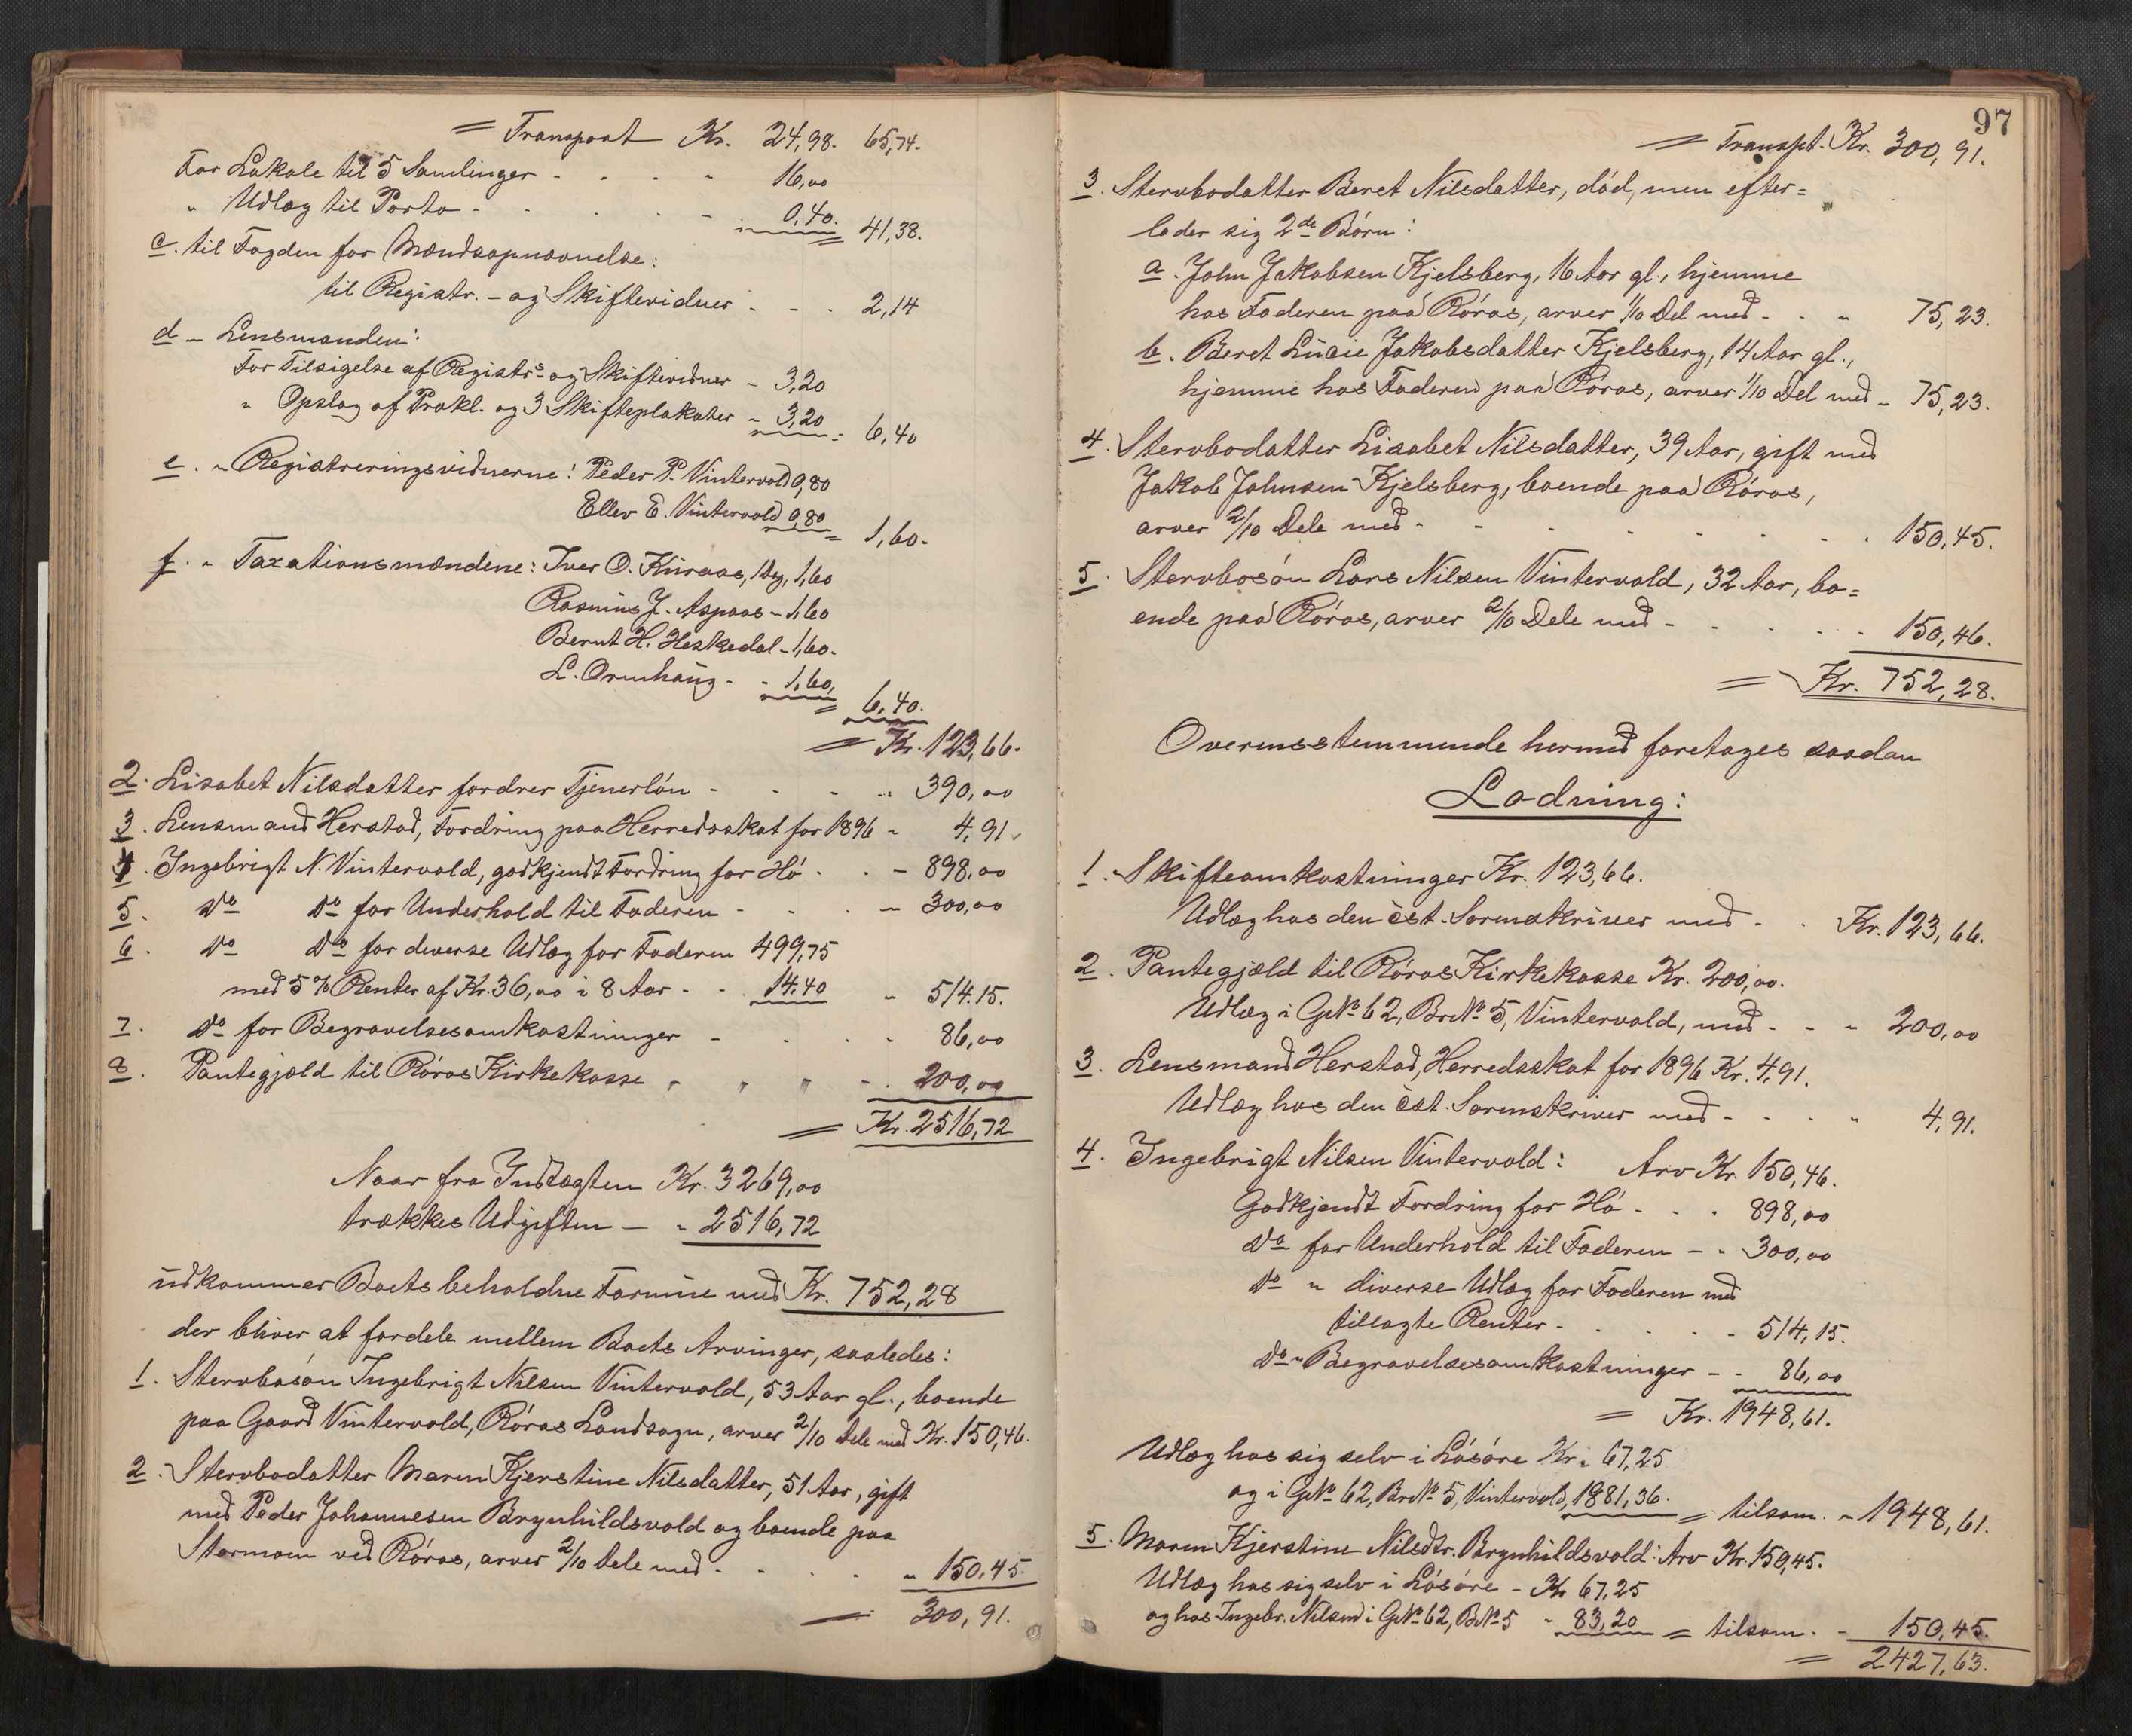 = Transport Kr. 24,98. 65,74.
For Lokale til 5 Samlinger - - - " 16,00
" Udlæg til Porto - - - - 0,40. = 41,38.
c. til Fogden for Mændsopnævnelse:
til Registr. - og Skiftevidner - - - 2,14
d - Lensmanden:
For Tilsigelse af Registrs- og Skiftevidner - 3,20
" Opslag af Prokl. og 3 Skifteplakater - 3,20 = 6,40
e. " Registreringsvidnerne: Peder P. Vintervold 0,80
Ellev E. Vintervold 0,80 = 1,60.
f. " Taxationsmændene: Iver O. Kuraas, 1 Dag, 1,60
Rasmus J. Aspaas - 1,60
Bernt H. Heskedal - 1,60.
L. Ormhaug - - 1,60, = 6,40.
= Kr. 123,66.
2. Lisabet Nilsdatter fordrer Tjenerløn - - - " 390,00
3. Lensmand Herstad, Fordring paa Herredsskat for 1896 " 4,91
4. Ingebrigt N. Vintervold, godkjendt Fordring for Hø - - - 898,00
5. Do Do for Underhold til Faderen - - - 300,00
6. Do Do for diverse Udlæg for Faderen 499,75
med 5 % Renter af Kr. 36,00 i 8 Aar - - 14.40 " 514.15.
7. Do for Begravelsesomkostninger - - - " 86,00
8. Pantegjæld til Røros Kirkekasse " " " - - 200,00
= Kr. 2516,72
Naar fra Indtægten Kr. 3269,00
trækkes Udgiften — " 2516,72
udkommer Boets beholdne Formue med Kr. 752,28
der bliver at fordele mellem Boets Arvinger, saaledes:
1. Stervbosøn Ingebrigt Nilsen Vintervold, 53 Aar gl., boende
paa Gaard Vintervold, Røros Landsogn, arver 2/10 Dele med Kr. 150,46.
2. Stervbodatter Maren Kjerstine Nilsdatter, 51 Aar, gift
med Peder Johannesen Brynhildsvold og boende paa
Stormoen ved Røros, arver 2/10 Dele med - - - - " 150,45.
= 300,91.
97
= Transpt. Kr. 300,91.
3. Stervbodatter Beret Nilsdatter, død, men efter=
lader sig 2de Børn:
a. John Jakobsen Kjelsberg, 16 Aar gl., hjemme
hos Faderen paa Røros, arver 1/10 Del med - - " 75,23.
b. Beret Lucie Jakobsdatter Kjelsberg, 14 Aar gl.,
hjemme hos Faderen paa Røros, arver 1/10 Del med - 75,23.
4. Stervbodatter Lisabet Nilsdatter, 39 Aar, gift med
Jakob Johnsen Kjelsberg, boende paa Røros,
arver 2/10 Dele med - - - - - - - 150,45.
5. Stervbosøn Lars Nilsen Vintervold, 32 Aar, bo=
ende paa Røros, arver 2/10 Dele med - - - - - 150,46.
= Kr. 752,28.
Overensstemmende hermed foretages saadan
Lodning:
1. Skifteomkostninger Kr. 123,66.
Udlæg hos den cst. Sorenskriver med - - Kr. 123,66.
2. Pantegjæld til Røros Kirkekasse Kr. 200,00.
Udlæg i GNo 62, BrNo 5, Vintervold, med - - - 200,00
3. Lensmand Herstad, Herredsskat for 1896 Kr. 4,91.
Udlæg hos den cst. Sorenskriver med - - - " 4,91.
4. Ingebrigt Nilsen Vintervold: Arv Kr. 150,46.
Godkjendt Fordring for Hø - - - 898,00
Do for Underhold til Faderen - - 300,00
Do " diverse Udlæg for Faderen med
tillagte Renter - - - - - 514,15.
Do " Begravelsesomkostninger - - 86,00
= Kr. 1948,61.
Udlæg hos sig selv i Løsøre Kr. 67,25
og i GNo 62, BrNo 5, Vintervold, 1881,36. = tilsam. " 1948,61.
5. Maren Kjerstine Nilsdtr. Brynhildsvold: Arv Kr. 150,45.
Udlæg hos sig selv i Løsøre - Kr 67,25
og hos Ingebr. Nilsen i GNo 62, BNo 5 " 83,20 = tilsam. - 150,45.
= 2427,63.